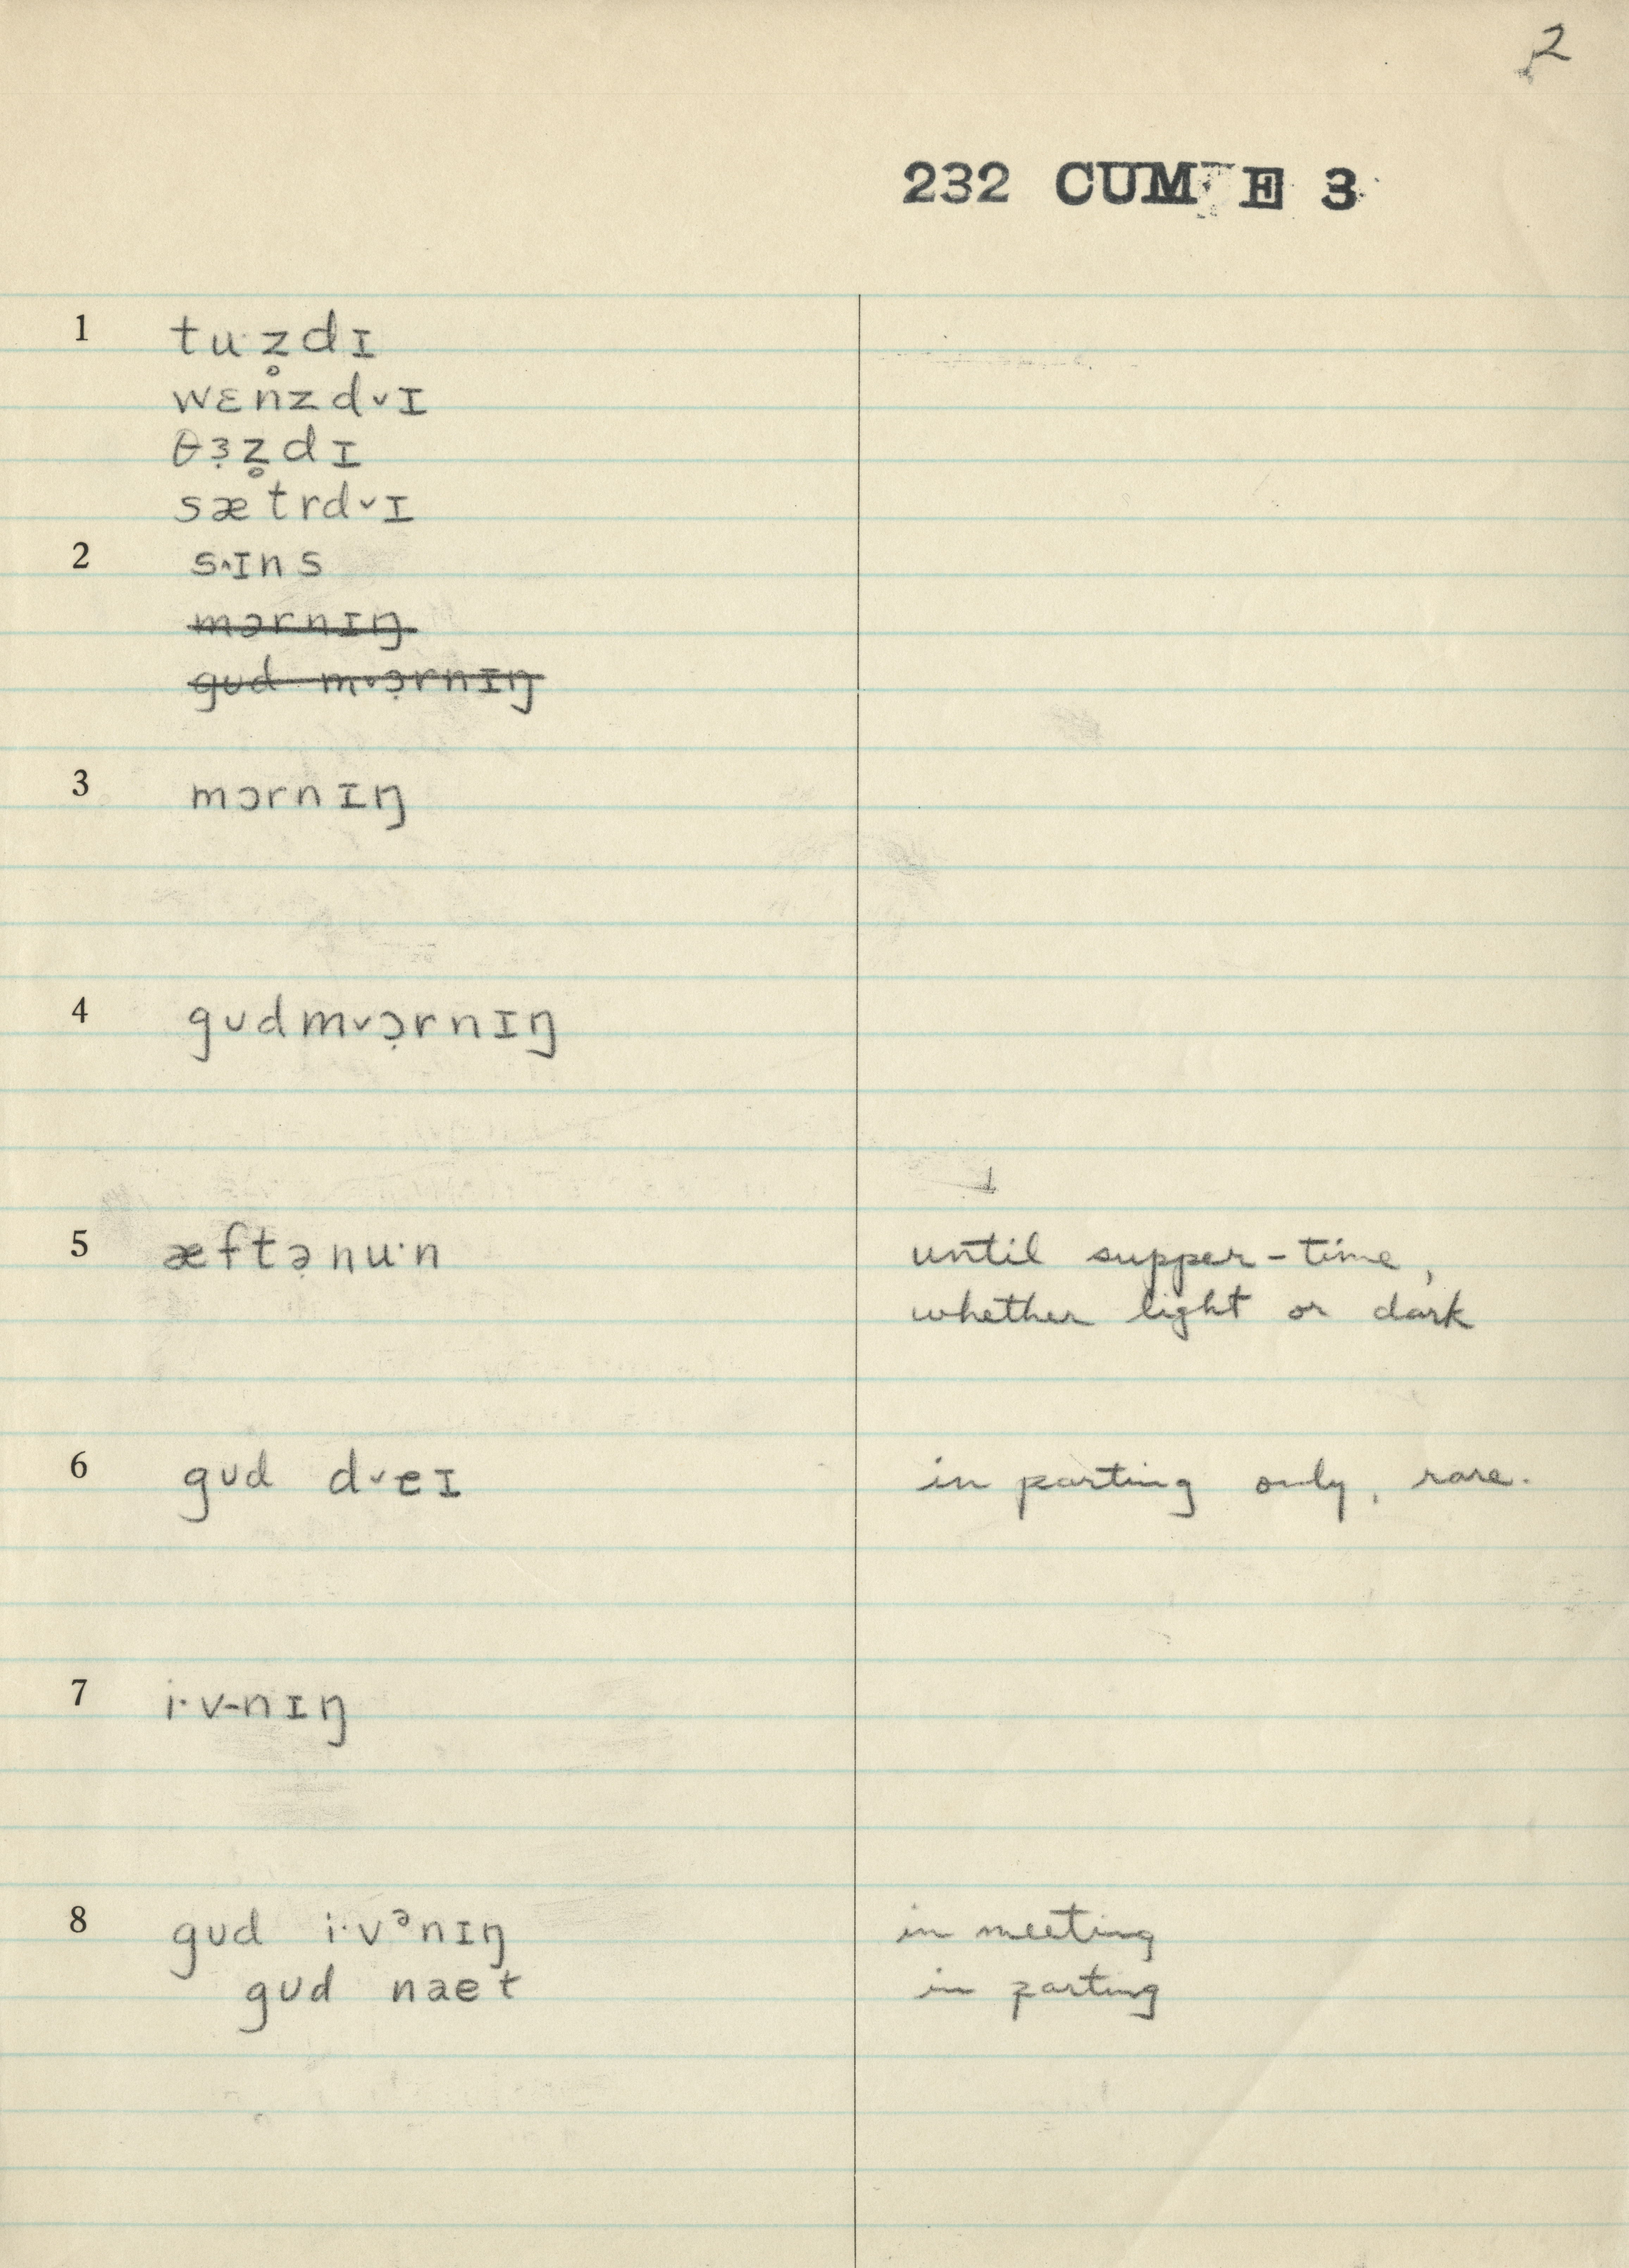 2
232 CUM E 3
1 tu·z̥dɪ
wɛnzd˅ɪ
θɜ̣z̥dɪ
sætrd˅ɪ
2 s˄ɪns
mɔrnɪŋ
gud m˅ɔ̣rnɪŋ
3 mɔrnɪŋ
4 gudm˅ɔ̣rnɪŋ
5 æftə̣nu·n until supper-time,
whether light or dark
6 gud d˅eɪ in parting only, rare.
7 i·v-nɪŋ
8 gud i·vᵊnɪŋ in meeting
gud naet in parting